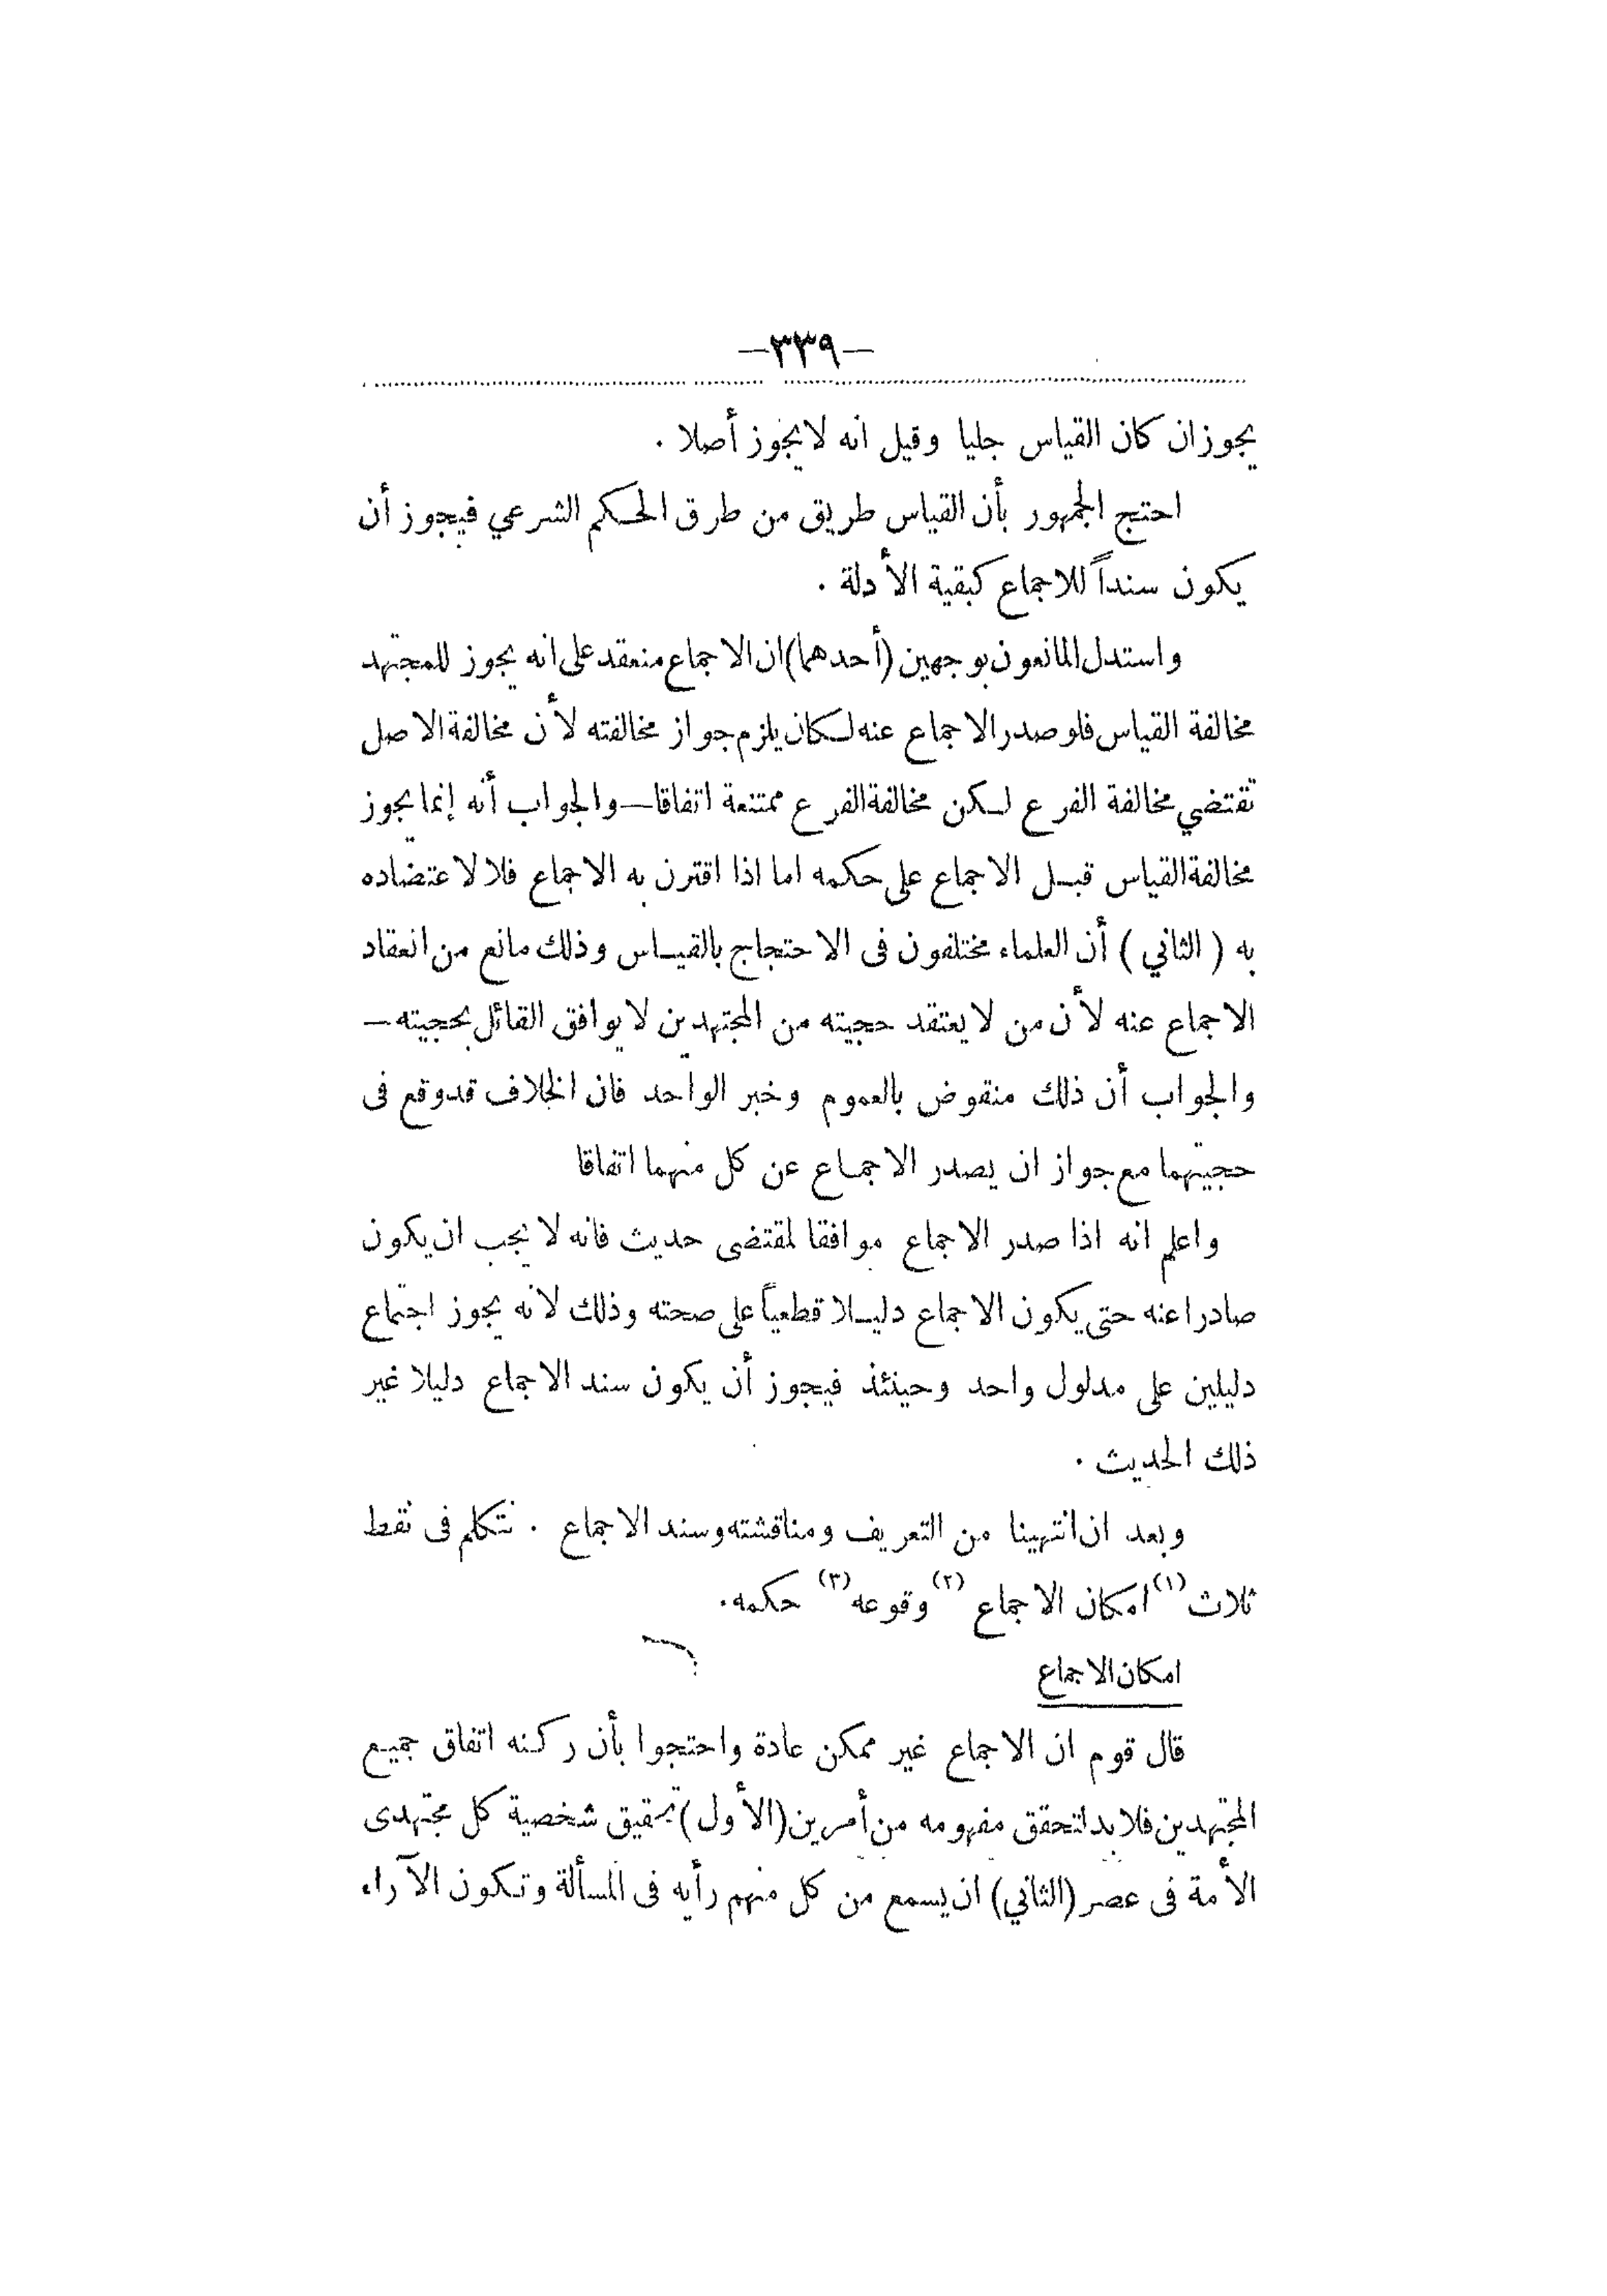 —٣٣٩—
يجوز ان كان القياس جليا وقيل انه لا يجوز أصلا .
احتج الجمهور بأن القياس طريق من طرق الحكم الشرعي فيجوز أن
يكون سنداً للاجماع كبقية الأدلة .
واستدل المانعون بوجهين (أحدهما) ان الاجماع منعقد على انه يجوز للمجتهد
مخالفة القياس فلو صدر الاجماع عنه لكان يلزم جواز مخالفته لأن مخالفة الاصل
تقتضي مخالفة الفرع لكن مخالفة الفرع ممتنعة اتفاقا — والجواب أنه إنما يجوز
مخالفة القياس قبل الاجماع على حكمه اما اذا اقترن به الاجماع فلا لاعتضاده
به ( الثاني ) أن العلماء مختلفون فى الاحتجاج بالقياس وذلك مانع من انعقاد
الاجماع عنه لأن من لا يعتقد حجيته من المجتهدين لا يوافق القائل بحجيته —
والجواب أن ذلك منقوض بالعموم وخبر الواحد فان الخلاف قد وقع فى
حجيتهما مع جواز ان يصدر الاجماع عن كل منهما اتفاقا
واعلم انه اذا صدر الاجماع موافقا لمقتضى حديث فانه لا يجب ان يكون
صادرا عنه حتى يكون الاجماع دليلا قطعياً على صحته وذلك لانه يجوز اجتماع
دليلين على مدلول واحد وحينئذ فيجوز أن يكون سند الاجماع دليلا غير
ذلك الحديث .
وبعد ان انتهينا من التعريف ومناقشته وسند الاجماع . نتكلم فى نقط
ثلاث (١) امكان الاجماع (٢) وقوعه (٣) حكمه.
امكان الاجماع
قال قوم ان الاجماع غير ممكن عادة واحتجوا بأن ركنه اتفاق جميع
المجتهدين فلا بد لتحقق مفهومه من أمرين (الأول) تحقيق شخصية كل مجتهدى
الأمة فى عصر (الثاني) ان يسمع من كل منهم رأيه فى المسألة وتكون الآراء